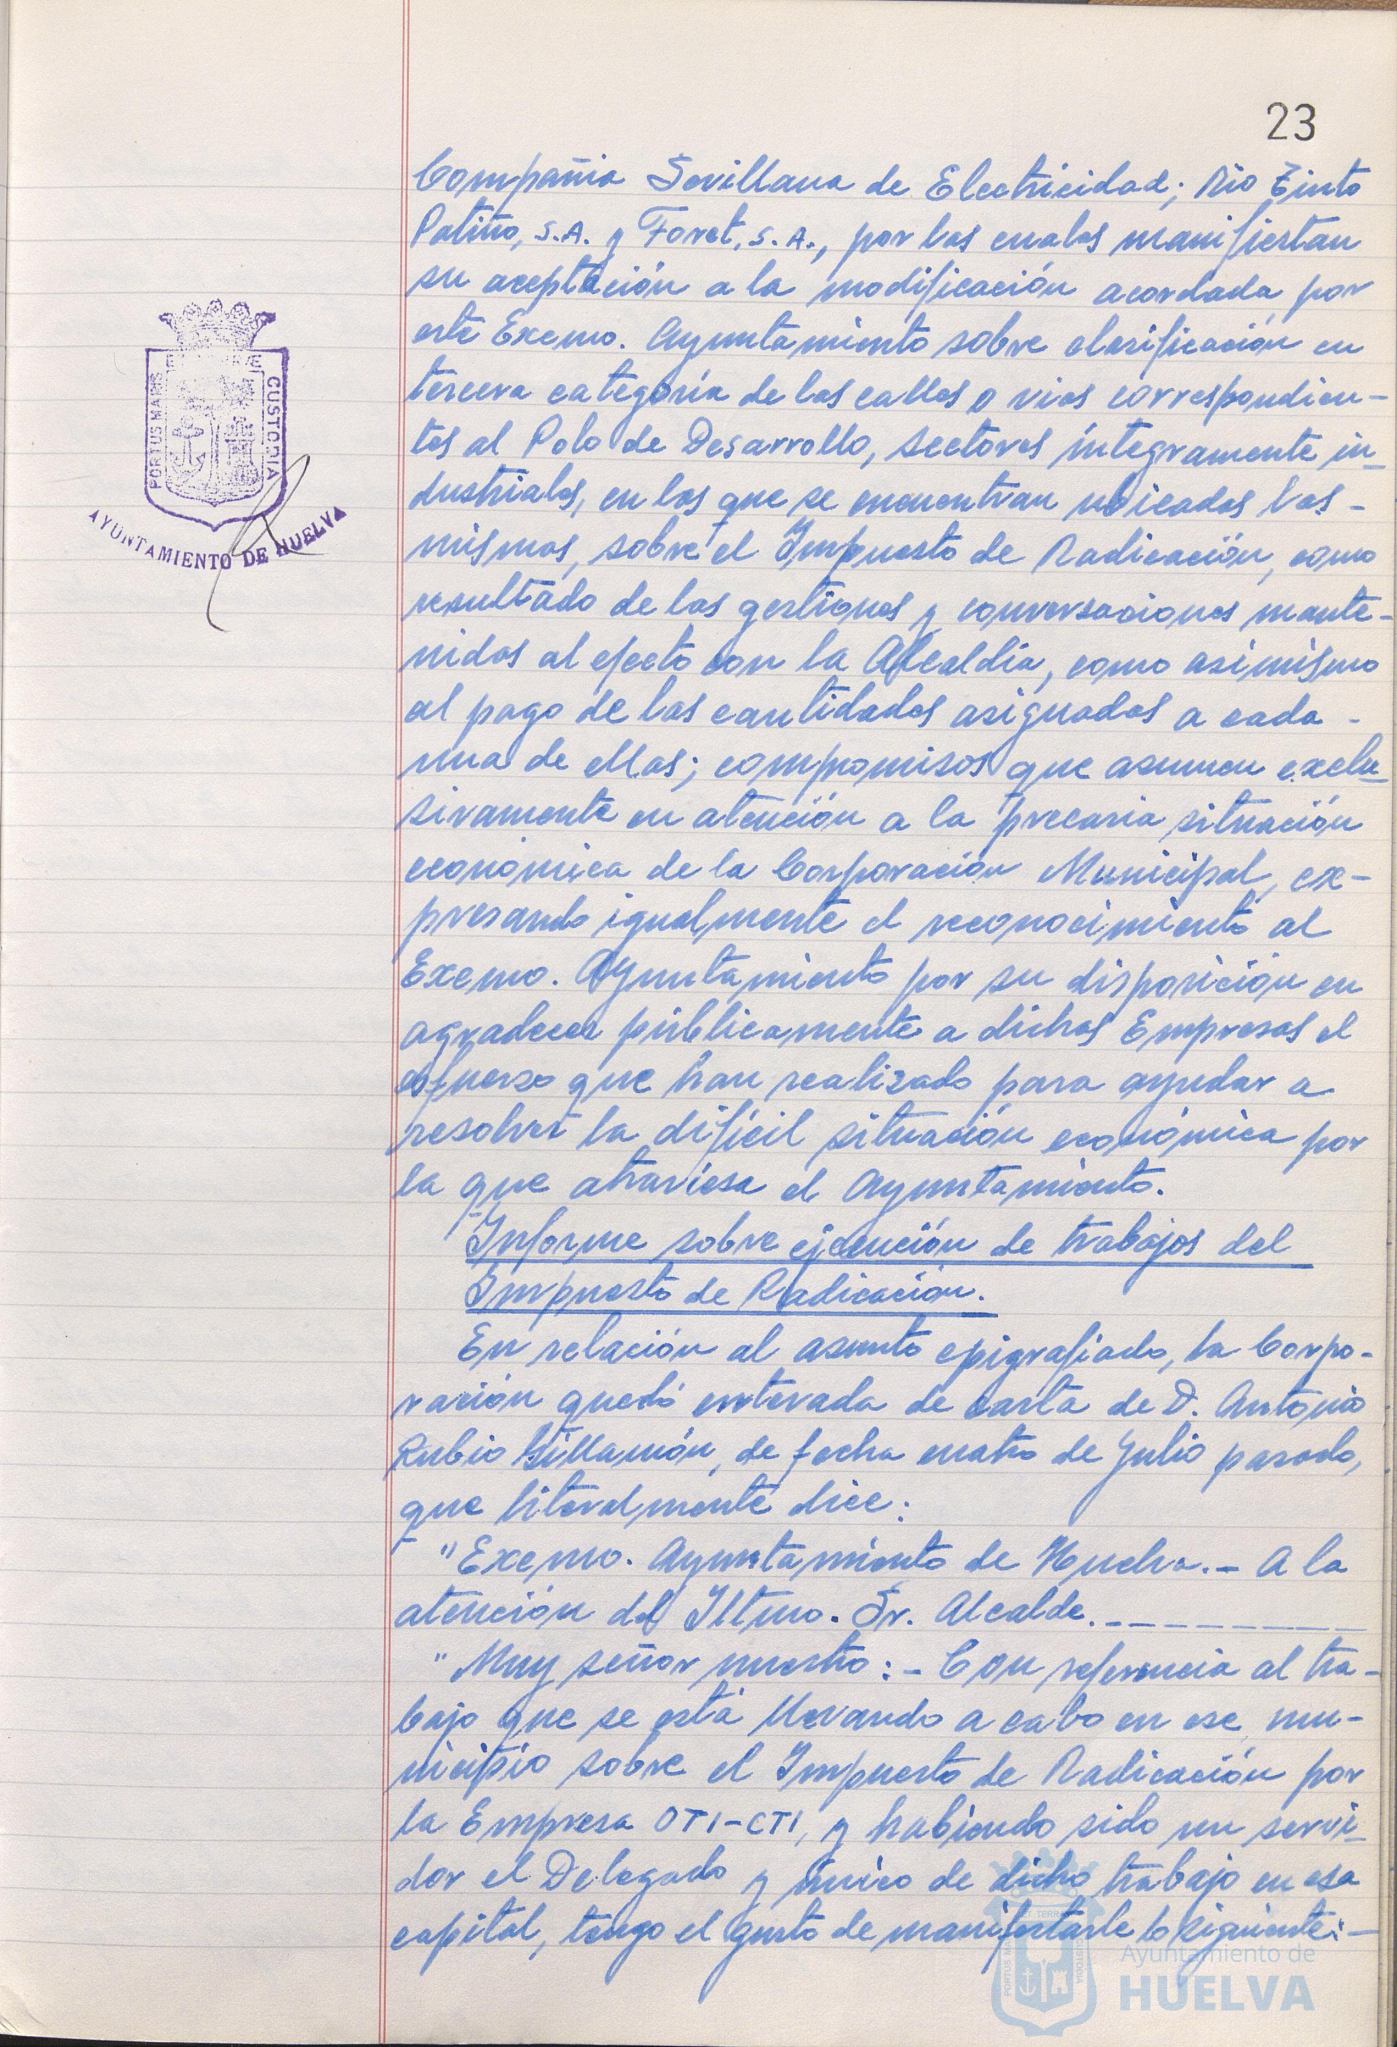 23
Compañia Sevillana de Electricidad; Rio Tinto
Patiño, S.A. y Foret, S.A., por las cuales manifiestan
su aceptación a la modificación acordada por
este Excmo. Ayuntamiento sobre clasificación en
tercera categoría de las calles o vias correspondien-
tes al Polo de Desarrollo, sectores íntegramente in-
dustriales, en los que se encuentran ubicadas las-
mismas, sobre el Impuesto de Radicación, como
resultado de las gestiones y conversaciones mante-
nidas al efecto con la Alcaldía, como asimismo
al pago de las cantidades asignadas a cada-
una de ellas; compromisos que asumen exclu-
sivamente en atención a la precaria situación
económica de la Corporación Municipal, ex-
presando igualmente el reconocimiento al
Excmo. Ayuntamiento por su disposición en
agradecer públicamente a dichas Empresas el
esfuerzo que han realizado para ayudar a
resolver la difícil situación económica por
la que atraviesa el Ayuntamiento.
Informe sobre ejecución de trabajos del
Impuesto de Radicación.
En relación al asunto epigrafiado, la Corpo-
ración quedó enterada de carta de D. Antonio
Rubio, de fecha cuatro de Julio pasado,
que literalmente dice:
"Excmo. Ayuntamiento de Huelva.- A la
atención del Iltmo. Sr. Alcalde.---------
"Muy señor nuestro:- Con referencia al tra-
bajo que se está llevando a cabo en ese mu-
nicipio sobre el Impuesto de Radicación por
la Empresa OTI-CTI, y habiendo sido un servi-
dor el Delegado y único de dicho trabajo en esa
capital, tengo el gusto de manifestarle lo siguiente:-
PORTUS MARIS
CUSTODIA
AYUNTAMIENTO DE HUELVA
Ayuntamiento de
HUELVA